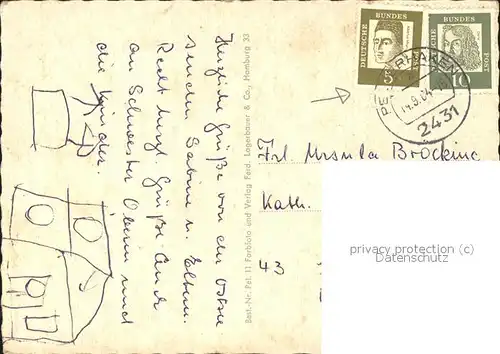 Herzliche Grüße von der Ostsee
senden Sabine u. Eltern.
Recht herzl. Grüße auch
an Schwester Oberin und
die Kinder.
Best.-Nr. Pel. 11 Farbfoto und Verlag Ferd. Lagerbauer & Co., Hamburg 33
DEUTSCHE
BUNDES
POST
5
DEUTSCHE
BUNDES
POST
10
14.9.64
2431
Frl. Ursula Bröcking
Kath.
43
privacy protection (c)
Datenschutz